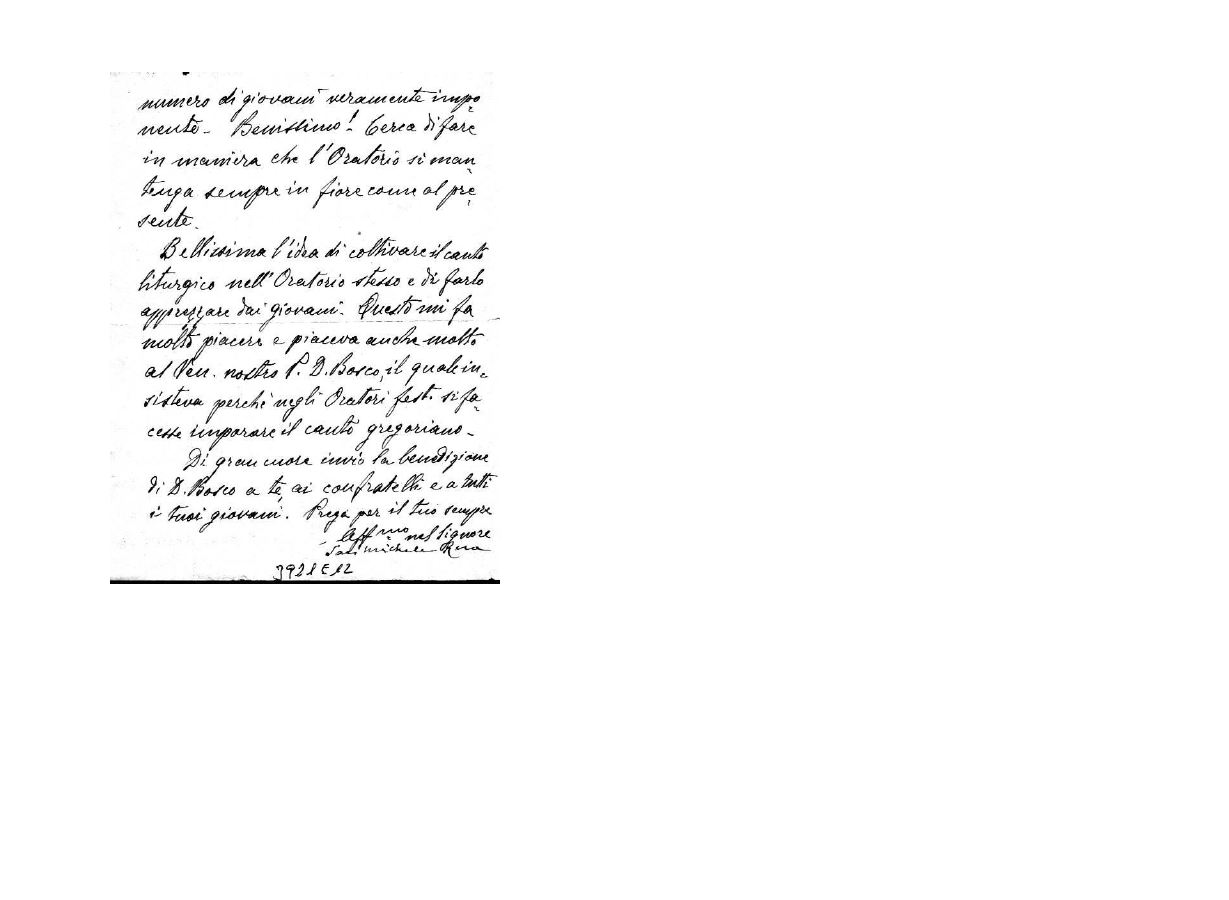 numero di giovani veramente impo
nente - Benissimo! Cerca di fare
in maniera che l'Oratorio si man
tenga sempre in fiore come al pre
sente.
Bellissima l'idea di coltivare il canto
liturgico nell'Oratorio stesso e di farlo
apprezzare dai giovani. Questo mi fa
molto piacere e piaceva anche molto
al Ven. nostro P. D. Bosco, il quale in-
sisteva perchè negli Oratori fest. si fa
cesse imparare il canto gregoriano -
Di gran cuore invio la benedizione
di D. Bosco a te, ai confratelli e a tutti
i tuoi giovani. Prega per il tuo sempre
Aff mo nel Signore
Sac. Michele Rua
3921E12